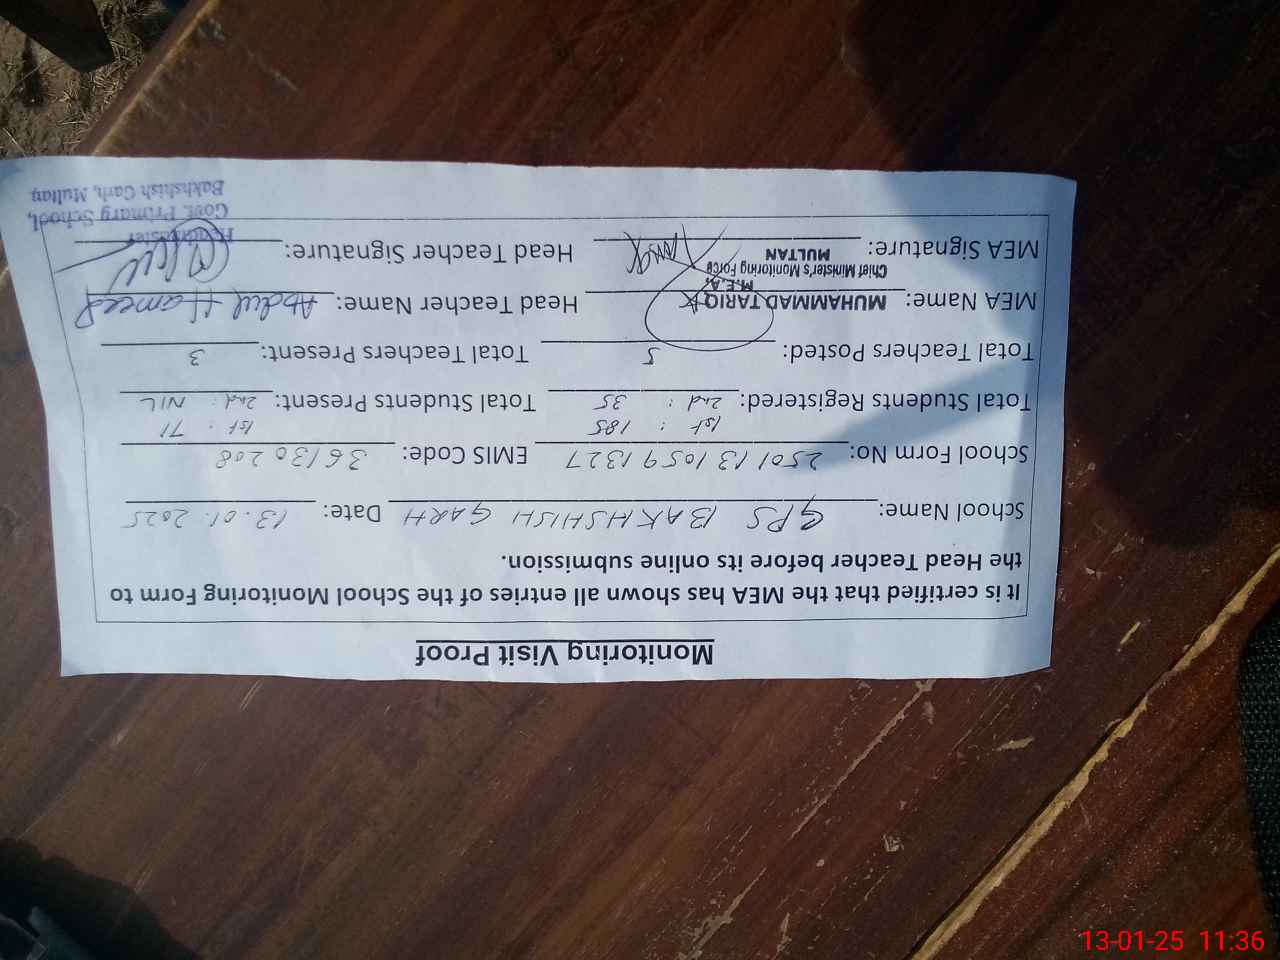 Monitoring Visit Proof
It is certified that the MEA has shown all entries of the School Monitoring Form to
the Head Teacher before its online submission.
School Name: GPS BAKHSHISH GARH Date: 13.01.2025
School Form No: 2501131059 1327 EMIS Code: 36130208
1st : 185 1st : 71
Total Students Registered: 2nd : 35 Total Students Present: 2nd : NIL
Total Teachers Posted: 5 Total Teachers Present: 3
MEA Name: MUHAMMAD TARIQ Head Teacher Name: Abdul Hameed
M.E.A.
Chief Minister's Monitoring Force
MULTAN
MEA Signature: Head Teacher Signature:
Headmaster
Govt. Primary School,
Bakhshish Garh, Multan.
13-01-25 11:36